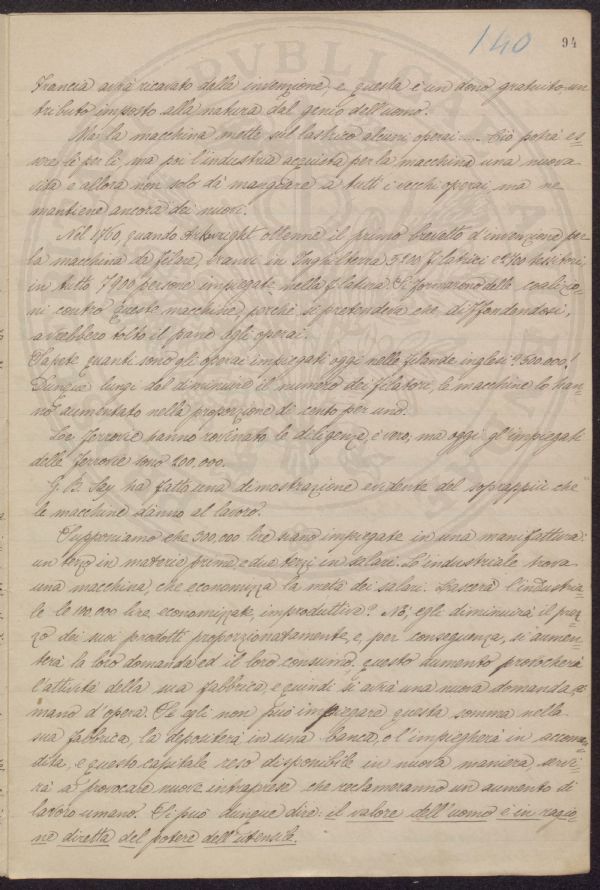 140
94
Francia avrà ricavato della invenzione, e questa è un dono gratuito, un
tributo imposto alla natura dal genio dell'uomo.
Ma la macchina mette sul lastrico alcuni operai.... Ciò potrà es=
sere lì per lì, ma poi l'industria acquista per la macchina una nuova
vita e allora non solo dà mangiare a tutti i vecchi operai, ma ne
mantiene ancora dei nuovi.
Nel 1760, quando Arkwright ottenne il primo brevetto d'invenzione per
la macchina da filare, eranvi in Inghilterra 5200 filatrici e 2700 tessitori,
in tutto 7900 persone impiegate nella filatura. Si formarono delle coalizio=
ni contro queste macchine, perchè si pretendeva che diffondendosi,
avrebbero tolto il pane agli operai.
Sapete quanti sono gli operai impiegati oggi nelle filande inglesi? 500.000!
Dunque lungi dal diminuire il numero dei filatori, le macchine lo han=
no aumentato nella proporzione di cento per uno.
Le ferrovie hanno rovinato le diligenze, è vero, ma oggi gl'impiegati
delle ferrovie sono 200,000.
G. B. Say ha fatto una dimostrazione evidente del soprappiù che
le macchine dànno al lavoro.
Supponiamo che 300.000 lire siano impiegate in una manifattura:
un terzo in materie prime, e due terzi in salari. Lo industriale trova
una macchina, che economizza la metà dei salari. Lascerà l'industria=
le le 100.000 lire economizzate, improduttive? No; egli diminuirà il prez=
zo dei suoi prodotti proporzionatamente, e, per conseguenza, si aumen=
terà la loro domanda ed il loro consumo; questo aumento provocherà
l'attività della sua fabbrica, e quindi si avrà una nuova domanda di
mano d'opera. Se egli non può impiegare questa somma nella
sua fabbrica, la depositerà in una banca, o l'impiegherà in accoman=
dita, e questo capitale reso disponibile in nuova maniera, servi=
rà a provocare nuove intraprese che reclameranno un aumento di
lavoro umano. Si può dunque dire: il valore dell'uomo è in ragio=
ne diretta del potere dell'utensile.